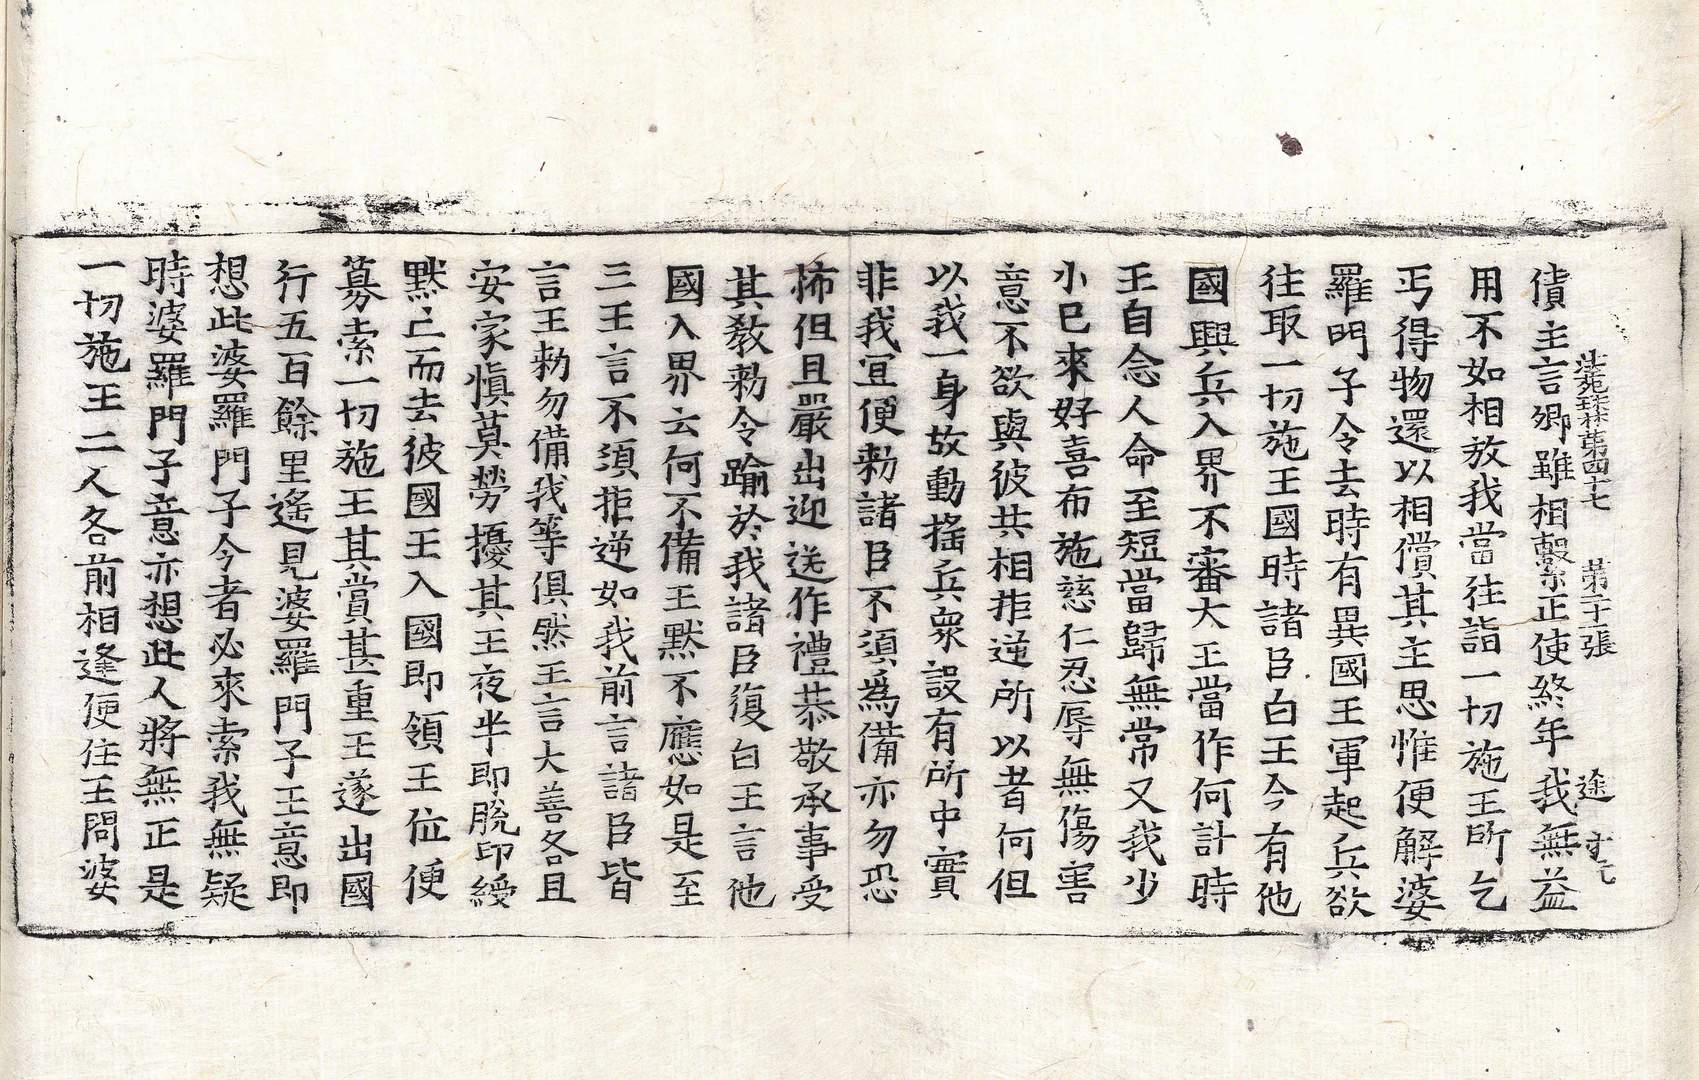 債主言卿雖相繫正使終年我無益
法苑珠林第四十七 第二十張 途
用不如相放我當往詣一切施王所乞
丐得物還以相償其主思惟便解婆
羅門子令去時有異國王軍起兵欲
往取一切施王國時諸臣白王今有他
國興兵入界不審大王當作何計時
王自念人命至短當歸無常又我少
小已來好喜布施慈仁忍辱無傷害
意不欲與彼共相拒逆所以者何但
以我一身故動搖兵衆設有所中實
非我宜便勅諸臣不須爲備亦勿恐
怖但且嚴出迎送作禮恭敬承事受
其教勅令踰於我諸臣復白王言他
國入界云何不備王默不應如是至
三王言不須拒逆如我前言諸臣皆
言王勅勿備我等俱然王言大善各且
安家愼莫勞擾其王夜半即脫印綬
默亡而去彼國王入國即領王位便
募索一切施王其賞甚重王遂出國
行五百餘里遙見婆羅門子王意即
想此婆羅門子今者必來索我無疑
時婆羅門子意亦想此人將無正是
一切施王二人各前相逢便住王問婆